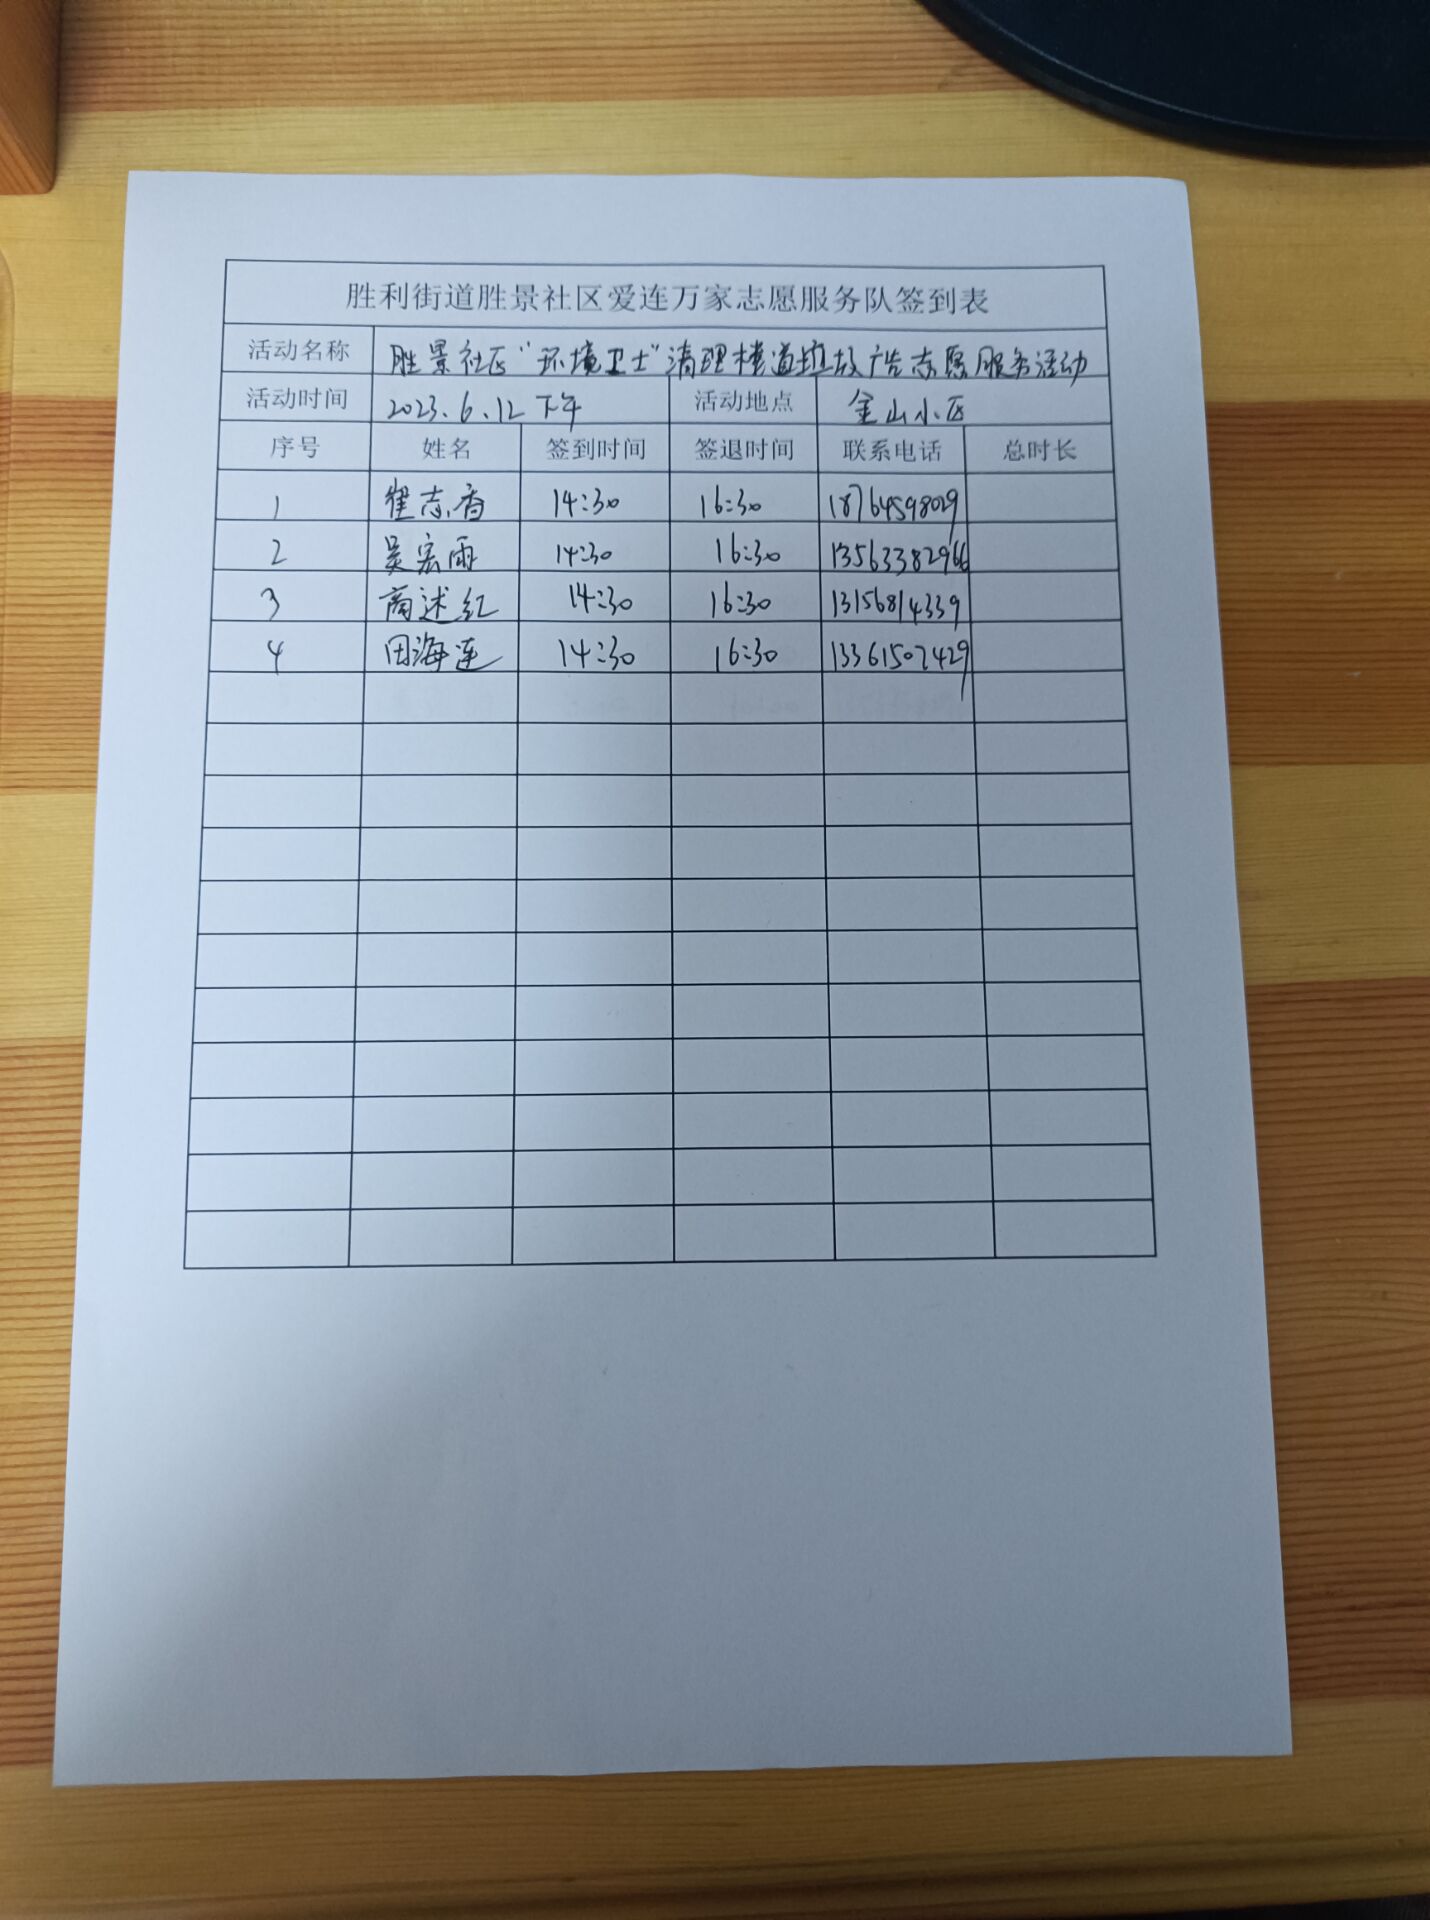 胜利街道胜景社区爱连万家志愿服务队签到表
活动名称 胜景社区“环境卫士”清理楼道垃圾广告志愿服务活动
活动时间 2023.6.12下午 活动地点 金山小区
序号 姓名 签到时间 签退时间 联系电话 总时长
1 崔志香 14:30 16:30 18764598029
2 吴宏雨 14:30 16:30 13563382966
3 商述红 14:30 16:30 13156814339
4 田海莲 14:30 16:30 13361507429